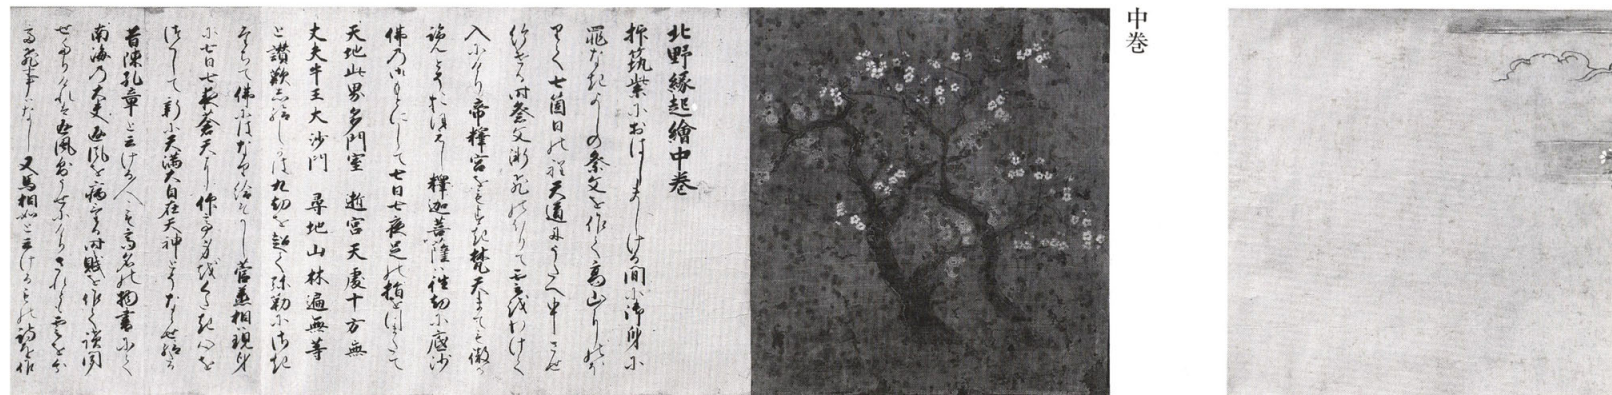 中巻
北野縁起繪中巻
抑筑紫におはしましける間に御身に
罪なきよしの祭文を作て高山にのほ
りて七箇日の程天道にうたへ申させ
給ける時祭文漸飛のほりて雲をわけて
入にけり帝釋宮をもすき梵天まても
とそおほえし釋迦菩薩は往劫に底沙
佛のみもとにして七日七夜足の指をつまたてて
天地此界多門室 逝宮天處十方無
丈夫牛王大沙門 尋地山林遍無等
と讃歎し給しかは九劫を超て弥勒にさき
たちて佛にはなり給そかし菅丞相現身
に七日七夜蒼天に仰て身をくたき心を
つくして新に天満大自在天神とそならせ給
昔陳孔章と云ける人こそ高名の物書にて
南海の大史頭風を病ける時賦を作て讀聞
せたりけれは頭風されとも雲を
飛事はなし又馬相如と云けるもの詩を作